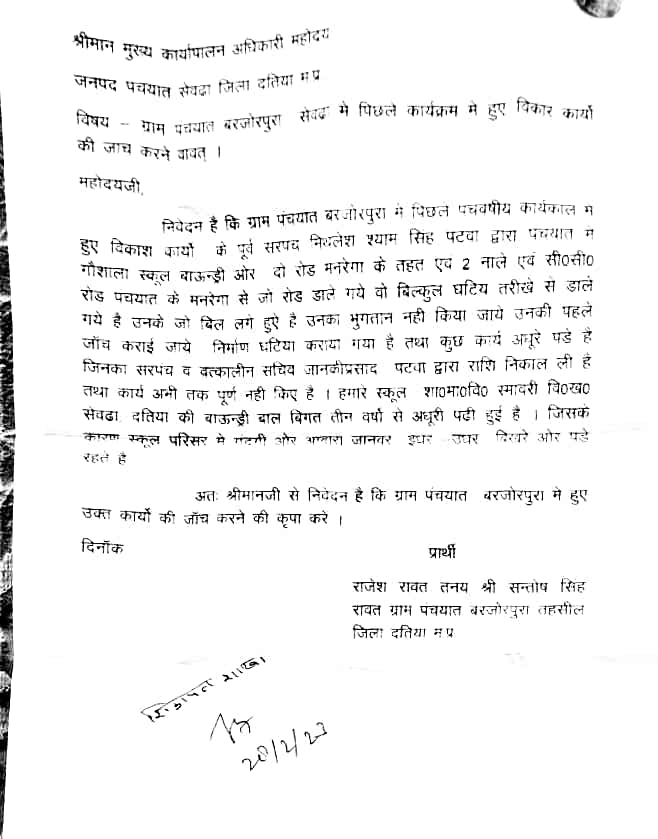 श्रीमान मुख्य कार्यापालन अधिकारी महोदय
जनपद पचयात सेवढा जिला दतिया म.प्र.
विषय – ग्राम पचयात बरजोरपुरा सेवढा मे पिछले कार्यक्रम मे हुए विकार कार्यो
की जाच करने वावत् ।
महोदयजी,
निवेदन है कि ग्राम पंचयात बरजोरपुरा मे पिछले पचवर्षीय कार्यकाल मे
हुए विकाश कार्यो के पूर्व सरपच मिथलेश श्याम सिह पटवा द्वारा पंचयात मे
गौशाला स्कूल बाऊन्ड्री ओर दो रोड मनरेगा के तहत एवं 2 नाले एवं सी0सी0
रोड पचयात के मनरेगा से जो रोड डाले गये वो बिल्कुल घटिय तरीखे से डाले
गये है उनके जो बिल लगे हुऐ है उनका भुगतान नही किया जाये उनकी पहले
जॉच कराई जाये निर्माण घटिया कराया गया है तथा कुछ कार्य अधूरे पडे है
जिनका सरपच व तत्कालीन सचिव जानकीप्रसाद पटवा द्वारा राशि निकाल ली है
तथा कार्य अभी तक पूर्ण नही किए है । हमारे स्कूल शा0मा0वि0 स्मावरी वि0ख0
सेवढा, दतिया की बाऊन्ड्री बाल बिगत तीन वर्षो से अधूरी पढी हुई है । जिसके
कारण स्कूल परिसर मे गंदगी और आवारा जानवर इधर –उधर विखरे ओर पडे
रहते है
अतः श्रीमानजी से निवेदन है कि ग्राम पंचयात बरजोरपुरा मे हुए
उक्त कार्यो की जॉच करने की कृपा करे ।
दिनॉक
प्रार्थी
राजेश रावत तनय श्री सन्तोष सिंह
रावत ग्राम पचयात बरजोरपुरा तहसील
जिला दतिया म.प्र.
शिकायत शाखा
20/2/23